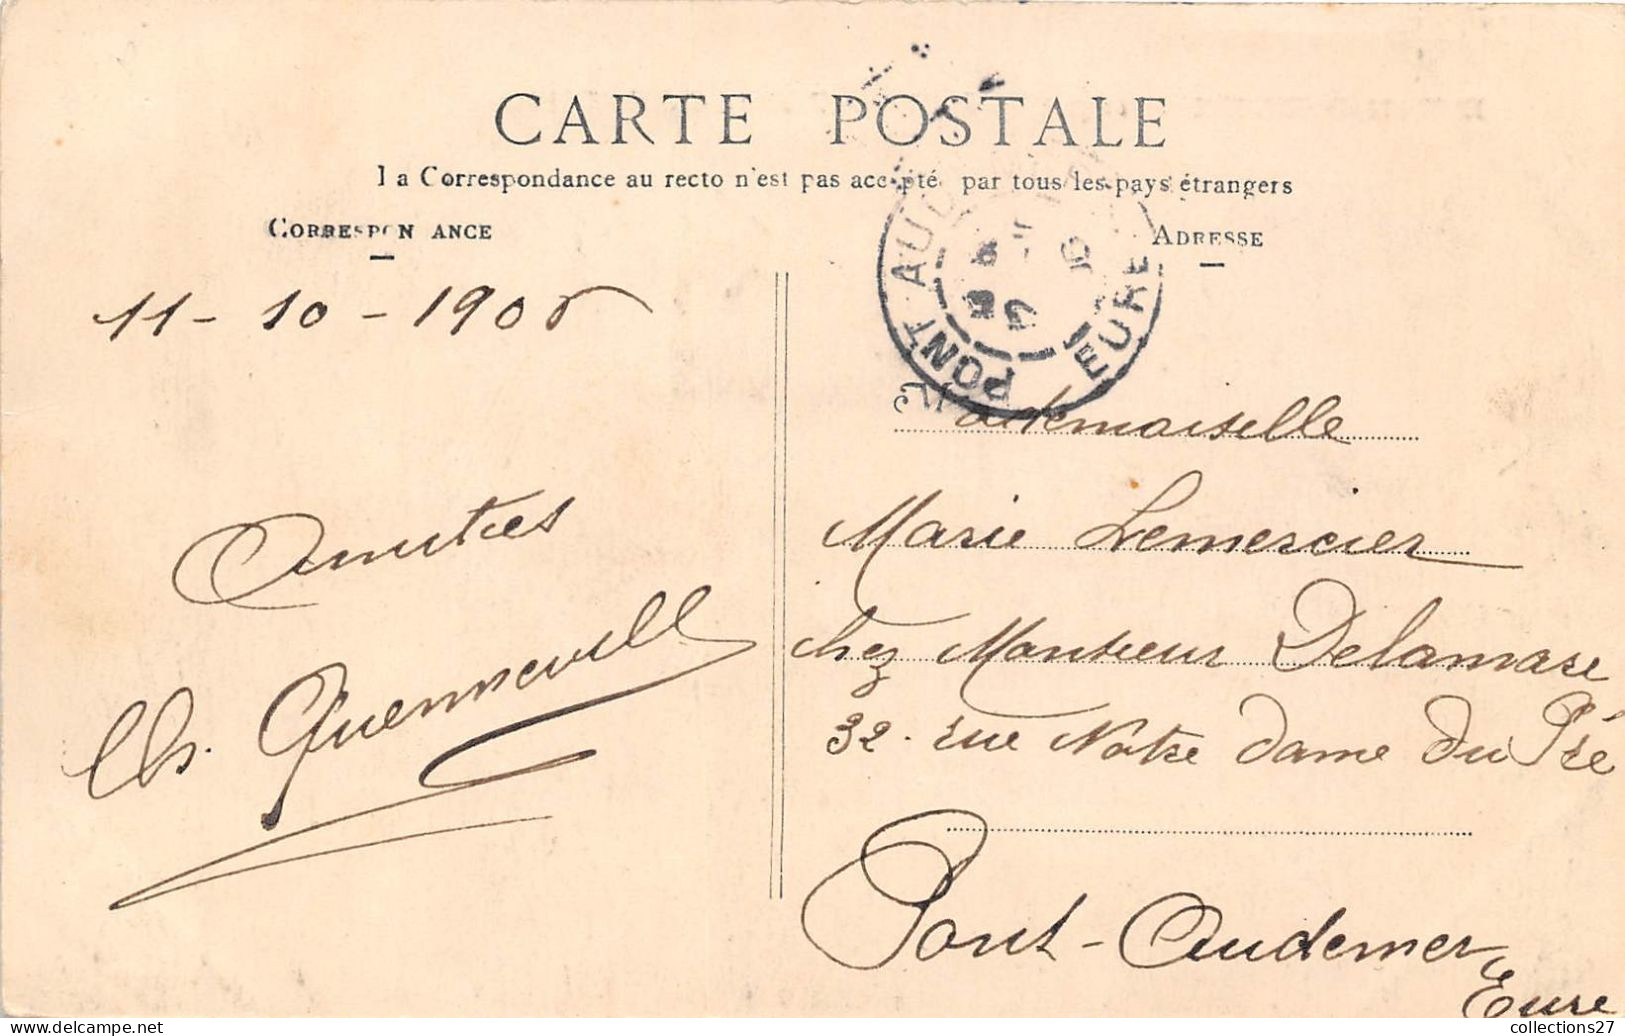 CARTE POSTALE
La Correspondance au recto n'est pas acceptée par tous les pays étrangers
CORRESPONDANCE
ADRESSE
PONT AUDEMER
EURE
11-10-1905
Amitiés
Ch. Quenneville
Mademoiselle
Marie Lemercier
chez Monsieur Delamare
32 rue Notre Dame du Pré
Pont-Audemer
Eure
collections27